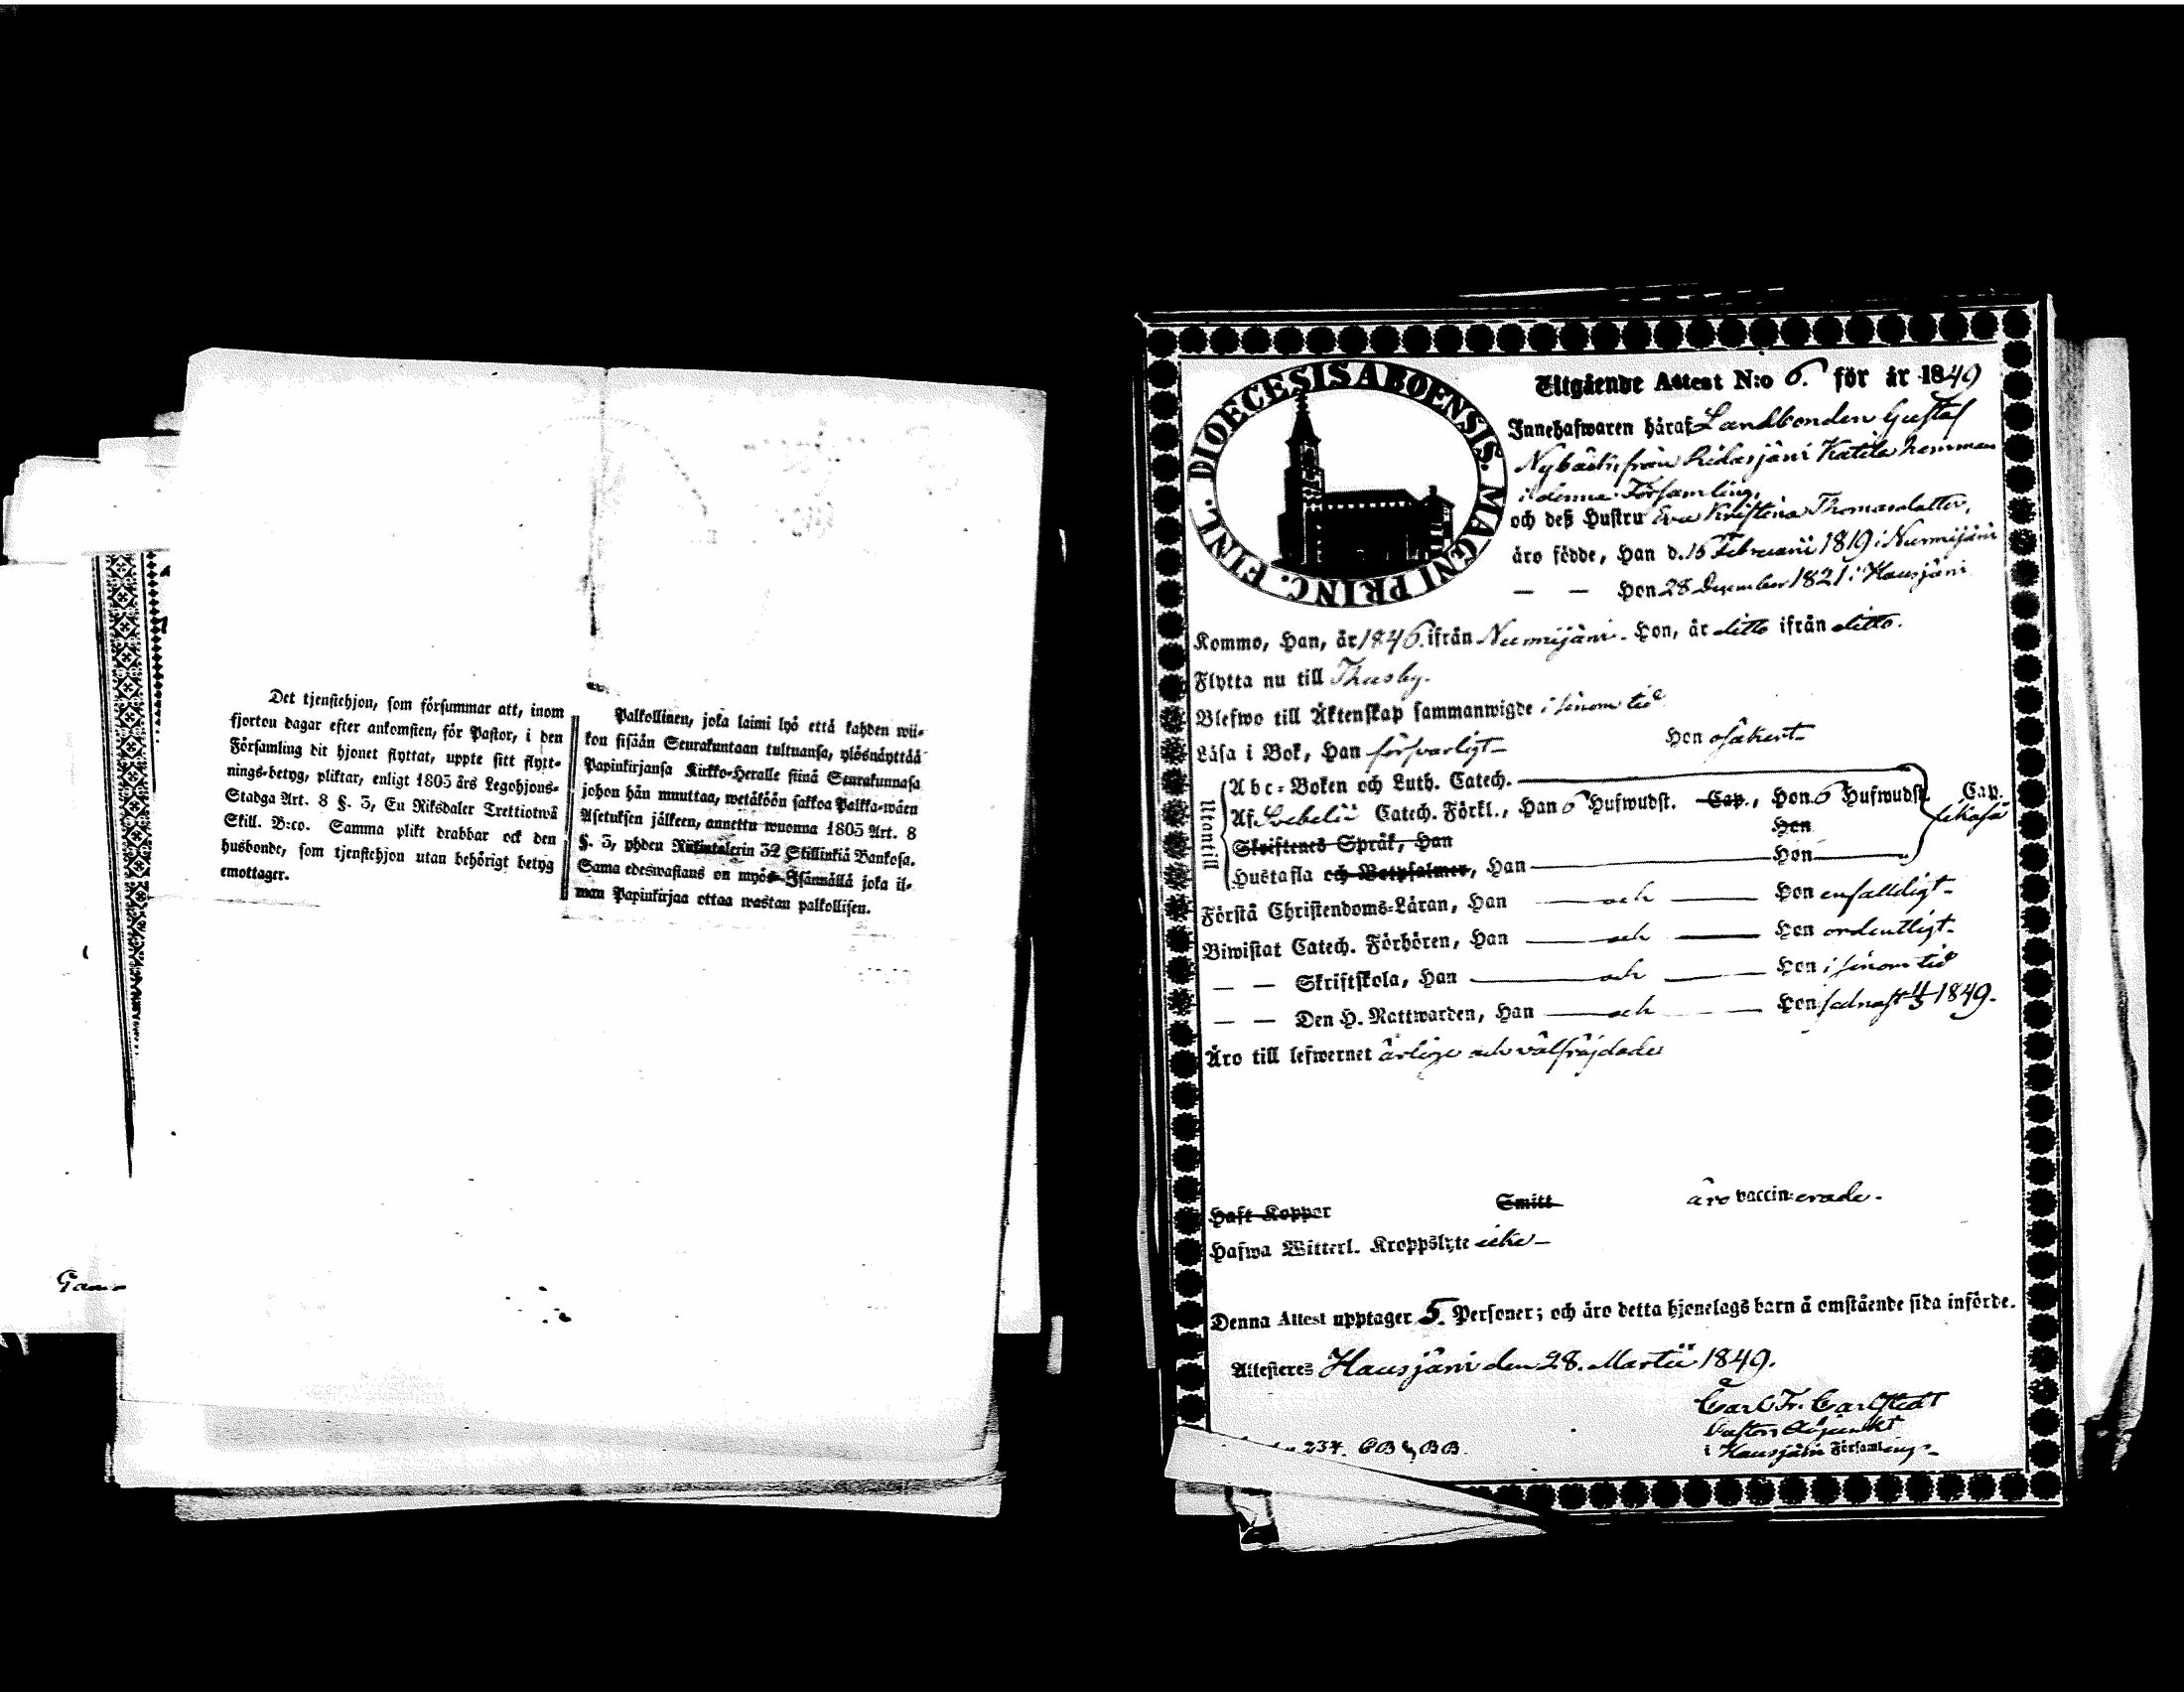 Det tjenstehjon, som försummar att, inom
fjorton dagar efter ankomsten, för Pastor, i den
Församling dit hjonet flyttat, uppte sitt flytt-
nings-betyg, pliktar, enligt 1805 års Legohjons-
Stadga Art. 8 §. 3, En Riksdaler Trettiotwå
Skill. B:co. Samma plikt drabbar ock den
husbonde, som tjenstehjon utan behörigt betyg
emottager.
Palkollinen, joka laimi lyö että kahden wii-
kon sisään Seurakuntaan tultuansa, ylösnäyttää
Papinkirjansa Kirkko-Heralle siinä Seurakunnasa
johon hän muuttaa, wetäköön sakkoa Palkka-wäen
Asetuksen jälkeen, annettu wuonna 1805 Art. 8
§. 3, yhden Riikintalerin 32 Skillinkiä Bankosa.
Sama edeswastaus on myös Isännällä joka il-
man Papinkirjaa ottaa wastan palkollisen.
DIOECESIS ABOENSIS. MAGNI PRINC. FINL.
Utgående Attest N:o 6. för år 1849
Innehafwaren häraf Landbonden Gustaf
Nybäck, från Ridasjärvi Katila hemman
i denna Församling,
och deß Hustru Eva Kristina Thomasdotter,
äro födde, Han d. 15 Februarii 1819 i Nurmijärvi
— — Hon 28 December 1821 i Hausjärvi
Kommo, Han, år 1846. ifrån Nurmijärvi. Hon, år ditto ifrån ditto.
Flytta nu till Thusby.
Blefwo till Äktenskap sammanwigde i sinom tid
Läsa i Bok, Han försvarligt Hon osäkert
Utontill
Abc-Boken och Luth. Catech.
Af Svebelii Catech. Förkl., Han 6 Hufwudst. Cap., Hon 6 Hufwudst. Cap.
Skriftenes Språk, Han Hon
Hustafla och Botpsalmer, Han Hon
Förstå Christendoms-Läran, Han och Hon enfalldigt
Biwistat Catech. Förhören, Han och Hon ordentligt
— — Skriftskola, Han och Hon i sinom tid
— — Den H. Nattwarden, Han och Hon sednast 4/3 1849.
Äro till lefwernet ärlige och välfräjdade
Haft Koppor Smitt äro vaccinerade.
Hafwa Witterl. Kroppslyte icke
Denna Attest upptager 5. Personer; och äro detta hjonelags barn å omstående sida införde.
Attesteres Hausjärvi den 28. Martii 1849.
Carl Fr. Carlstedt
Pastors Adjunkt
i Hausjärvi Församling
234. CB & BB.